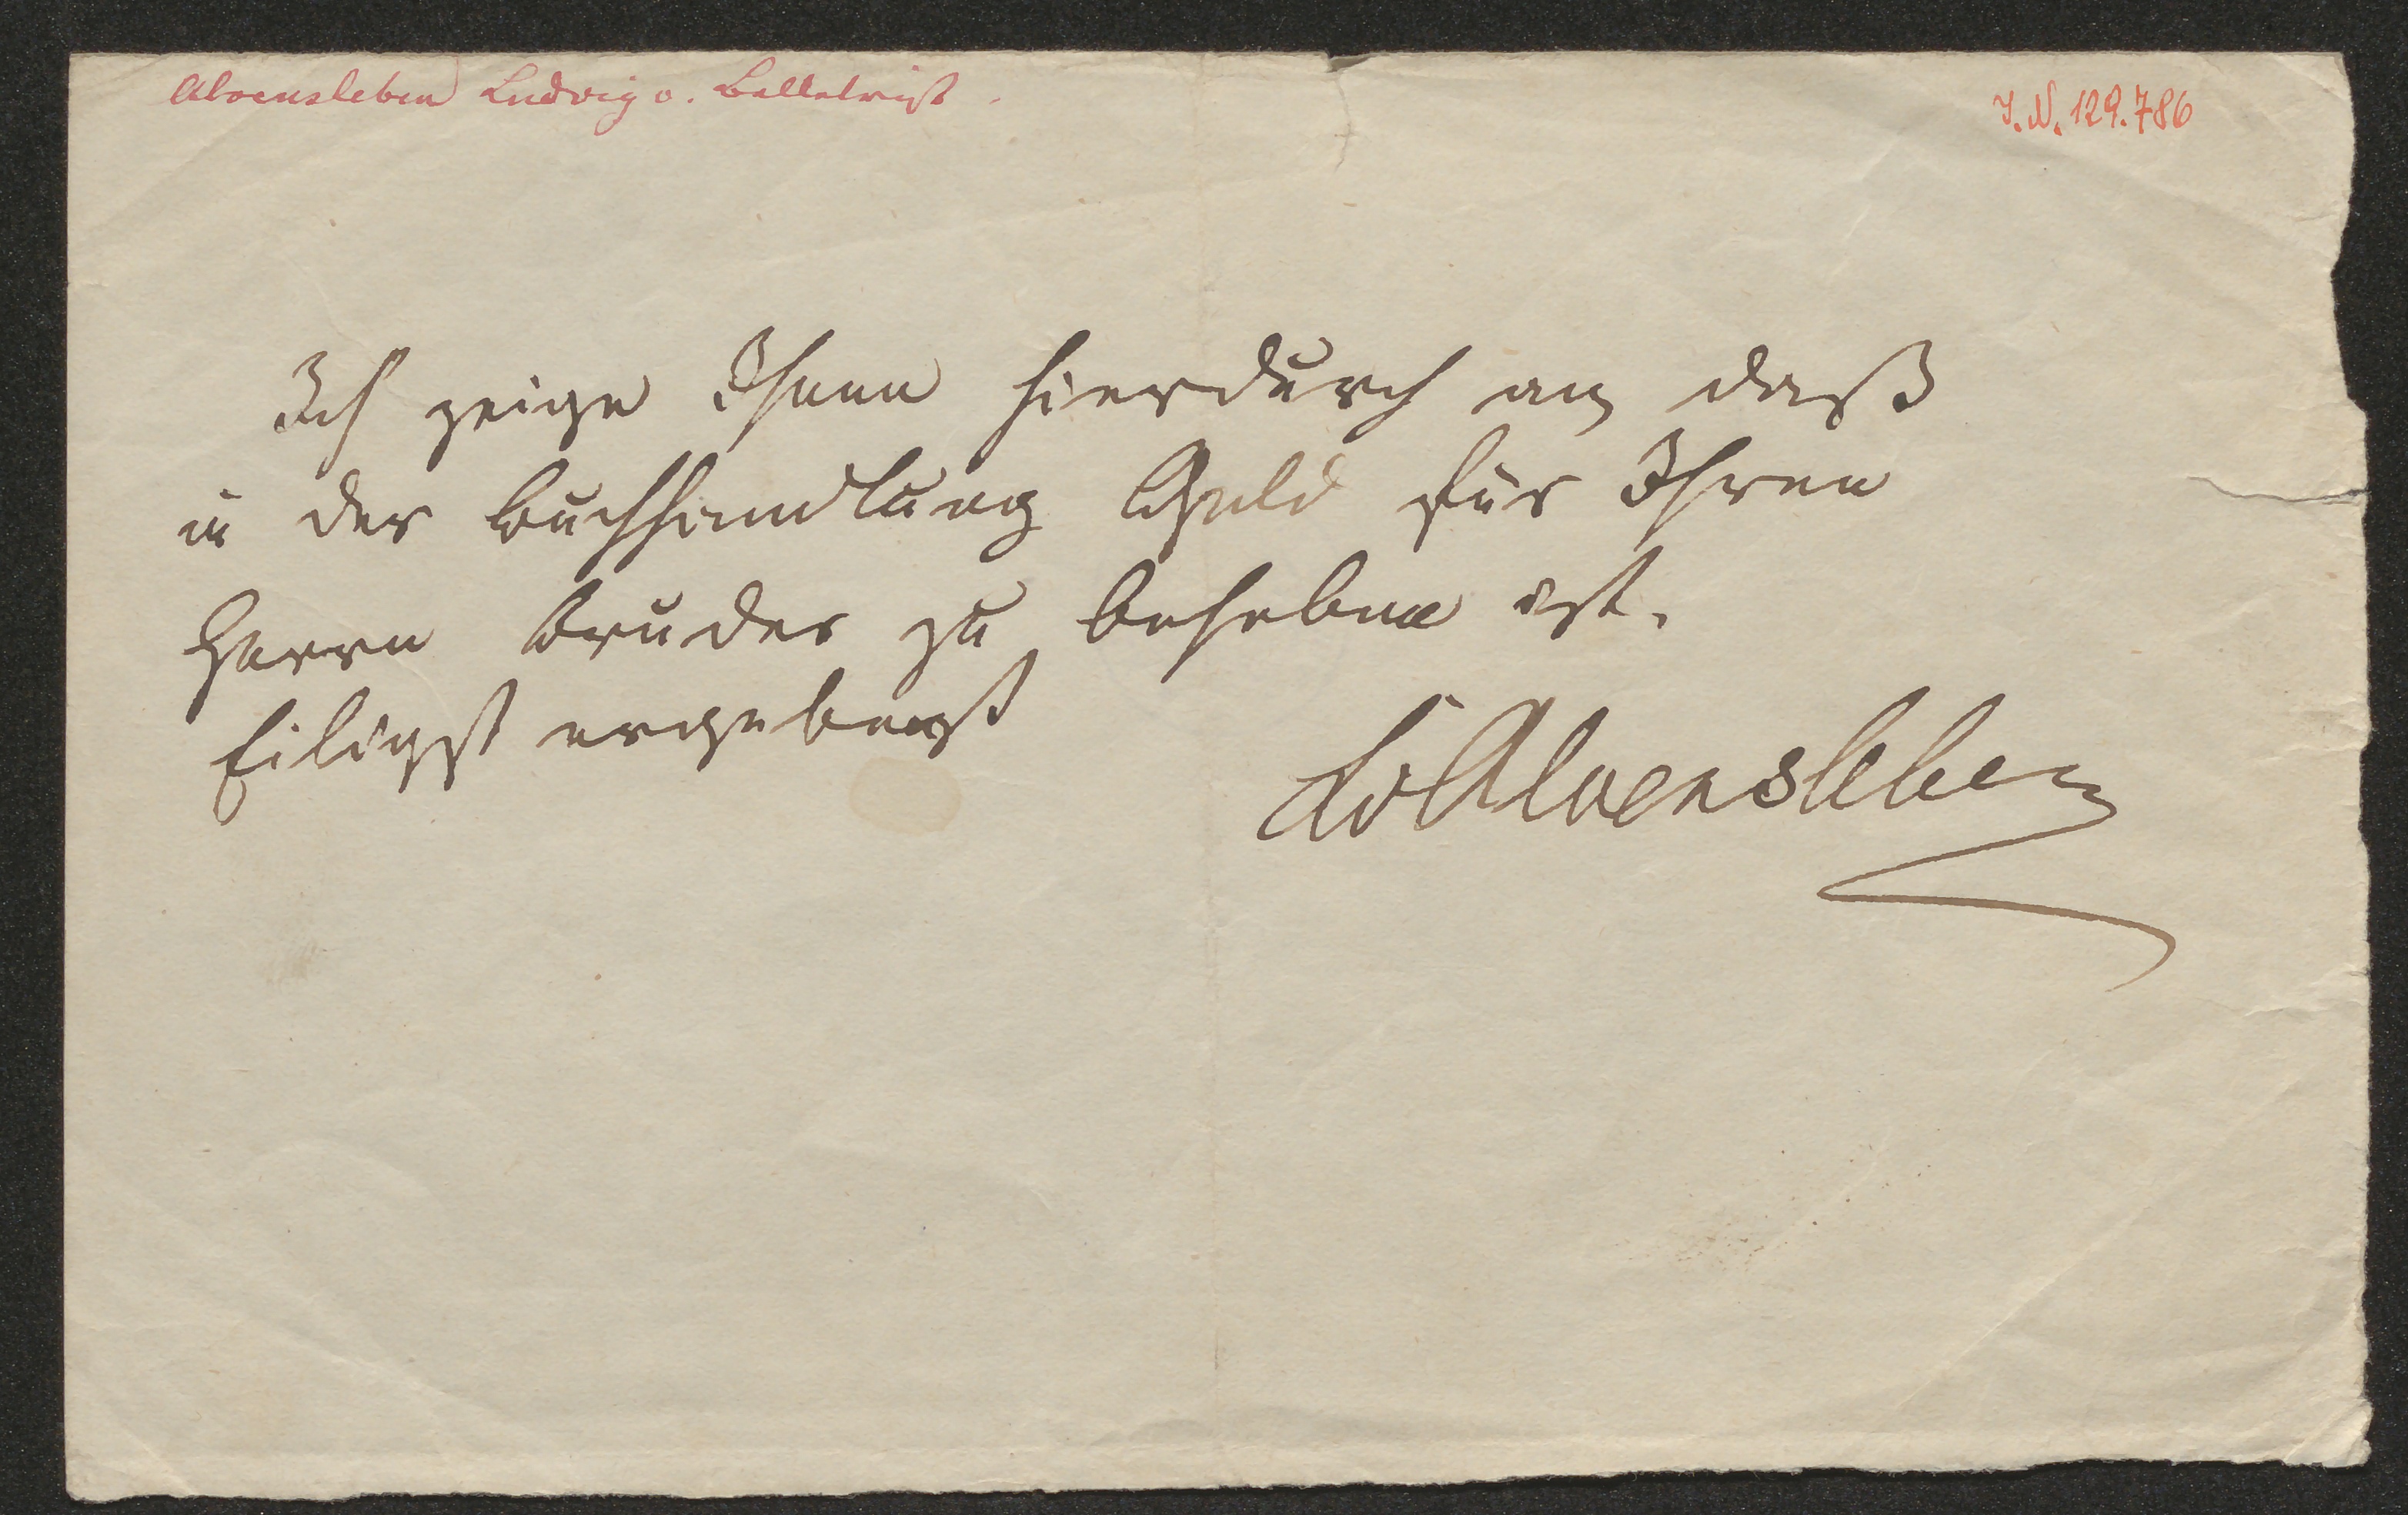 Alvensleben Ludwig v. Belletrist.
I. N. 129.786
Ich zeige Ihnen hierdurch an daß
in der Buchhandlung Geld für Ihren
Herrn Bruder zu beheben ist.
Eiligst ergebenst
LvAlvensleben